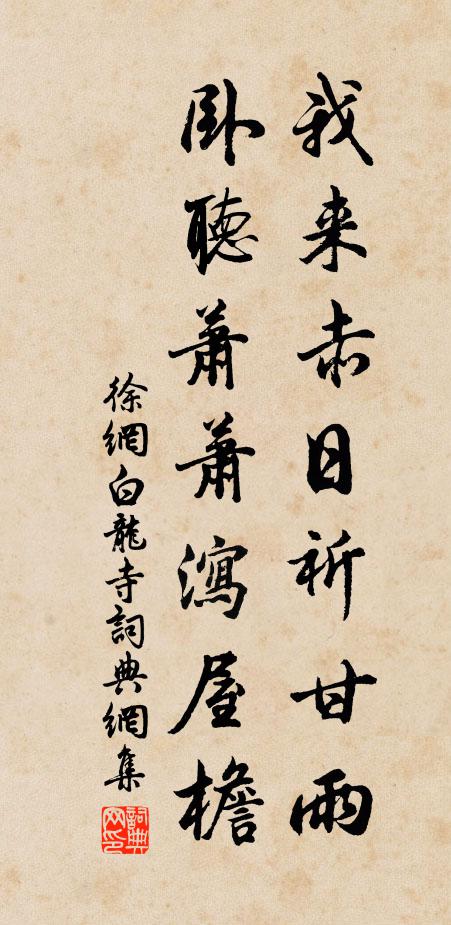 我来赤日祈甘雨
卧聽蕭蕭瀉屋檐
徐網白龍寺詞典網集
詞典网印